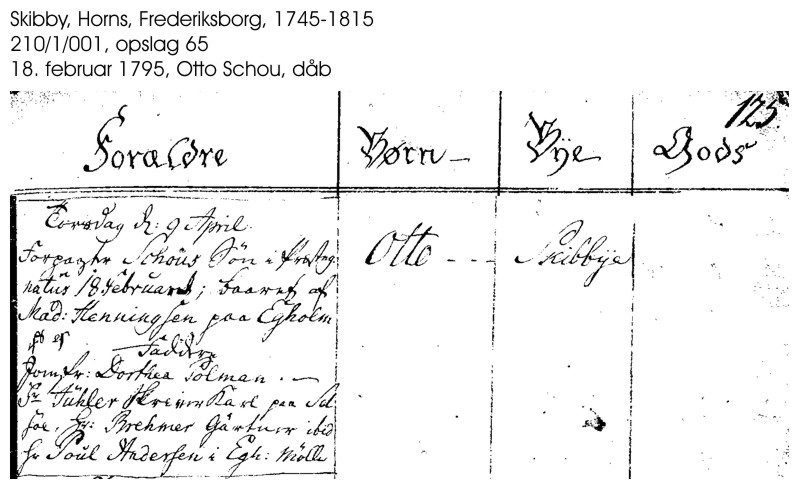 Skibby, Horns, Frederiksborg, 1745-1815
210/1/001, opslag 65
18. februar 1795, Otto Schou, dåb
125
Forældre Børn Bÿe Gods
Torsdag d: 9 April
Forpagter Schous Søn i Præsteg:
natus 18 Februari; baaret af
Mad: Henningsen paa Egholm
Faddere
Jomfr: Dorthea Polman
Sr Fühler Skriver Karl paa Sel
søe, Hr: Brehmer Gärtner ibid
Sr Poul Andersen i Egh: Mölle
Otto - - - Skibbÿe